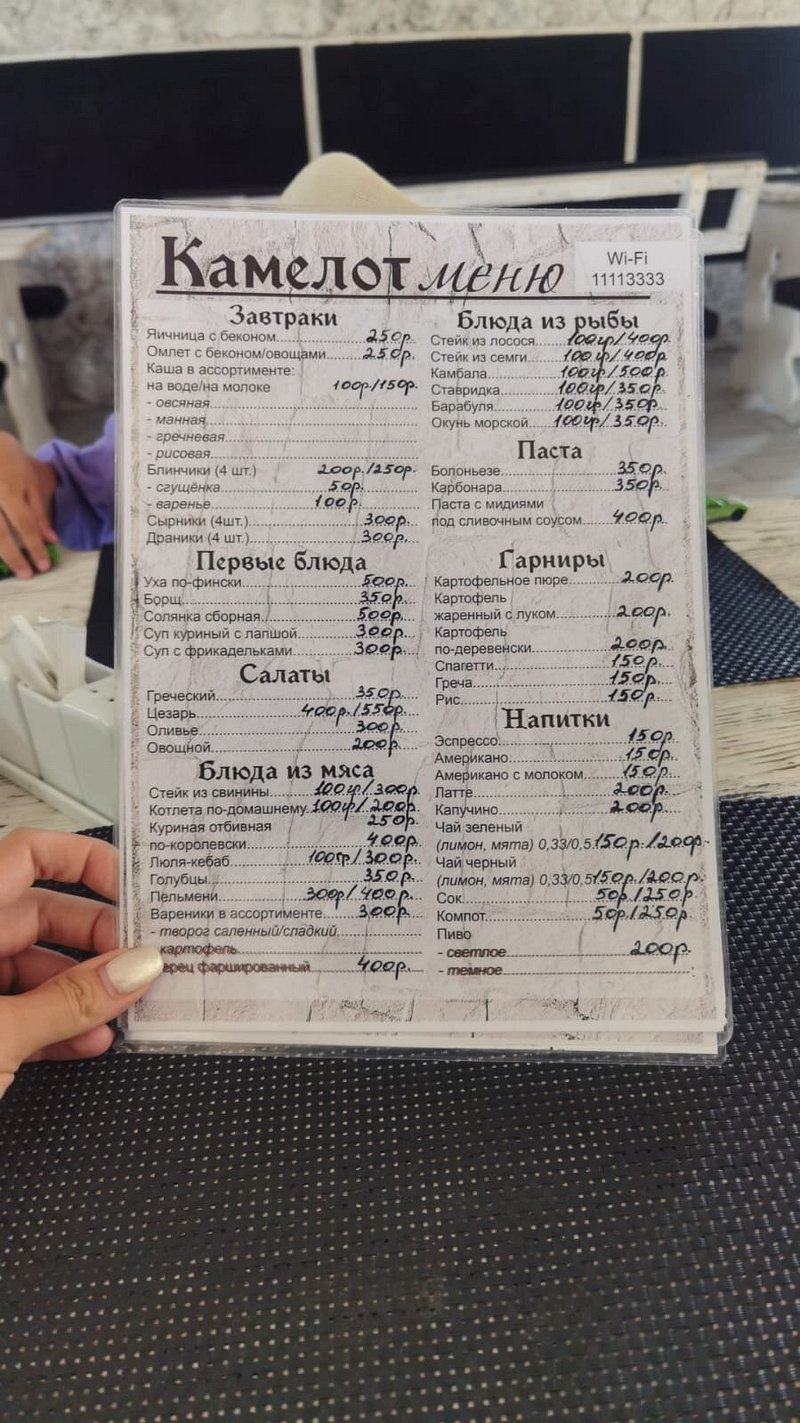 Камелот меню
Wi-Fi
11113333
Завтраки
Яичница с беконом 250р.
Омлет с беконом/овощами 250р.
Каша в ассортименте:
на воде/на молоке 100р/150р.
- овсяная
- манная
- гречневая
- рисовая
Блинчики (4 шт.) 200р./250р.
- сгущёнка 50р.
- варенье 100р.
Сырники (4шт.) 300р.
Драники (4 шт.) 300р.
Первые блюда
Уха по-фински 500р.
Борщ 350р.
Солянка сборная 500р.
Суп куриный с лапшой 300р.
Суп с фрикадельками 300р.
Салаты
Греческий 350р.
Цезарь 400р./550р.
Оливье 300р.
Овощной 200р.
Блюда из мяса
Стейк из свинины 100гр/300р.
Котлета по-домашнему 100гр/200р.
Куриная отбивная 250р.
по-королевски 400р.
Люля-кебаб 100гр/300р.
Голубцы 350р.
Пельмени 300р/400р.
Вареники в ассортименте 300р.
- творог саленный/сладкий
картофель
фаршированный 400р.
Блюда из рыбы
Стейк из лосося 100гр/400р.
Стейк из семги 100гр/400р.
Камбала 100гр/500р.
Ставридка 100гр/350р.
Барабуля 100гр/350р.
Окунь морской 100гр/350р.
Паста
Болоньезе 350р.
Карбонара 350р.
Паста с мидиями
под сливочным соусом 400р.
Гарниры
Картофельное пюре 200р.
Картофель
жаренный с луком 200р.
Картофель
по-деревенски 200р.
Спагетти 150р.
Греча 150р.
Рис 150р.
Напитки
Эспрессо 150р.
Американо 150р.
Американо с молоком 150р.
Латте 200р.
Капучино 200р.
Чай зеленый
(лимон, мята) 0,33/0,5 150р./200р.
Чай черный
(лимон, мята) 0,33/0,5 150р./200р.
Сок 50р./250р.
Компот 50р./250р.
Пиво
- светлое 200р.
- темное